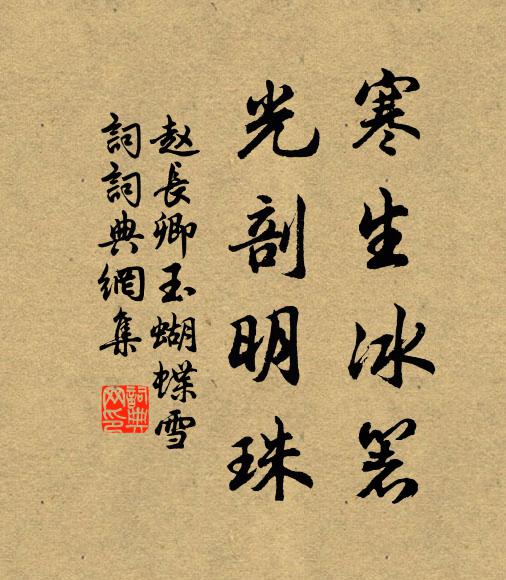 寒生冰箸
光剖明珠
赵長卿玉蝴蝶雪
詞詞典網集
詞典
网印